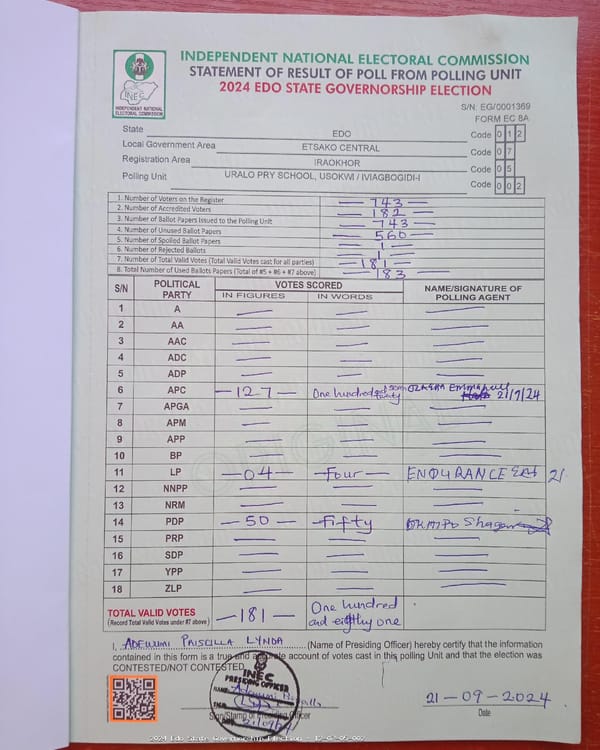 INDEPENDENT NATIONAL ELECTORAL COMMISSION
STATEMENT OF RESULT OF POLL FROM POLLING UNIT
2024 EDO STATE GOVERNORSHIP ELECTION
INEC
INDEPENDENT NATIONAL
ELECTORAL COMMISSION
S/N: EG/0001369
FORM EC 8A
State EDO Code 0 1 2
Local Government Area ETSAKO CENTRAL Code 0 7
Registration Area IRAOKHOR Code 0 5
Polling Unit URALO PRY SCHOOL, USOKWI / IVIAGBOGIDI-I Code 0 0 2
1. Number of Voters on the Register — 743 —
2. Number of Accredited Voters — 182 —
3. Number of Ballot Papers Issued to the Polling Unit — 743 —
4. Number of Unused Ballot Papers — 560 —
5. Number of Spoiled Ballot Papers — 1 —
6. Number of Rejected Ballots — 1 —
7. Number of Total Valid Votes (Total Valid Votes cast for all parties) — 181 —
8. Total Number of Used Ballots Papers (Total of #5 + #6 + #7 above) — 183 —
S/N POLITICAL PARTY VOTES SCORED NAME/SIGNATURE OF POLLING AGENT
IN FIGURES IN WORDS
1 A — — —
2 AA — — —
3 AAC — — —
4 ADC — — —
5 ADP — — —
6 APC — 127 — One hundred and twenty seven Emmanuel 21/9/24
7 APGA — — —
8 APM — — —
9 APP — — —
10 BP — — —
11 LP — 04 — — Four — ENDURANCE 21
12 NNPP — — —
13 NRM — — —
14 PDP — 50 — — Fifty
15 PRP — — —
16 SDP — — —
17 YPP — — —
18 ZLP — — —
TOTAL VALID VOTES — 181 — One hundred
(Record Total Valid Votes under #7 above) and eighty one
I, ADEWUMI PRISCILLA LYNDA (Name of Presiding Officer) hereby certify that the information
contained in this form is a true and accurate account of votes cast in this polling Unit and that the election was
CONTESTED/NOT CONTESTED.
INEC
PRESIDING OFFICER
NAME:
Sign/Stamp of Presiding Officer
21-09-2024
Date
2024 Edo State Governorship Election - 12-07-05-002